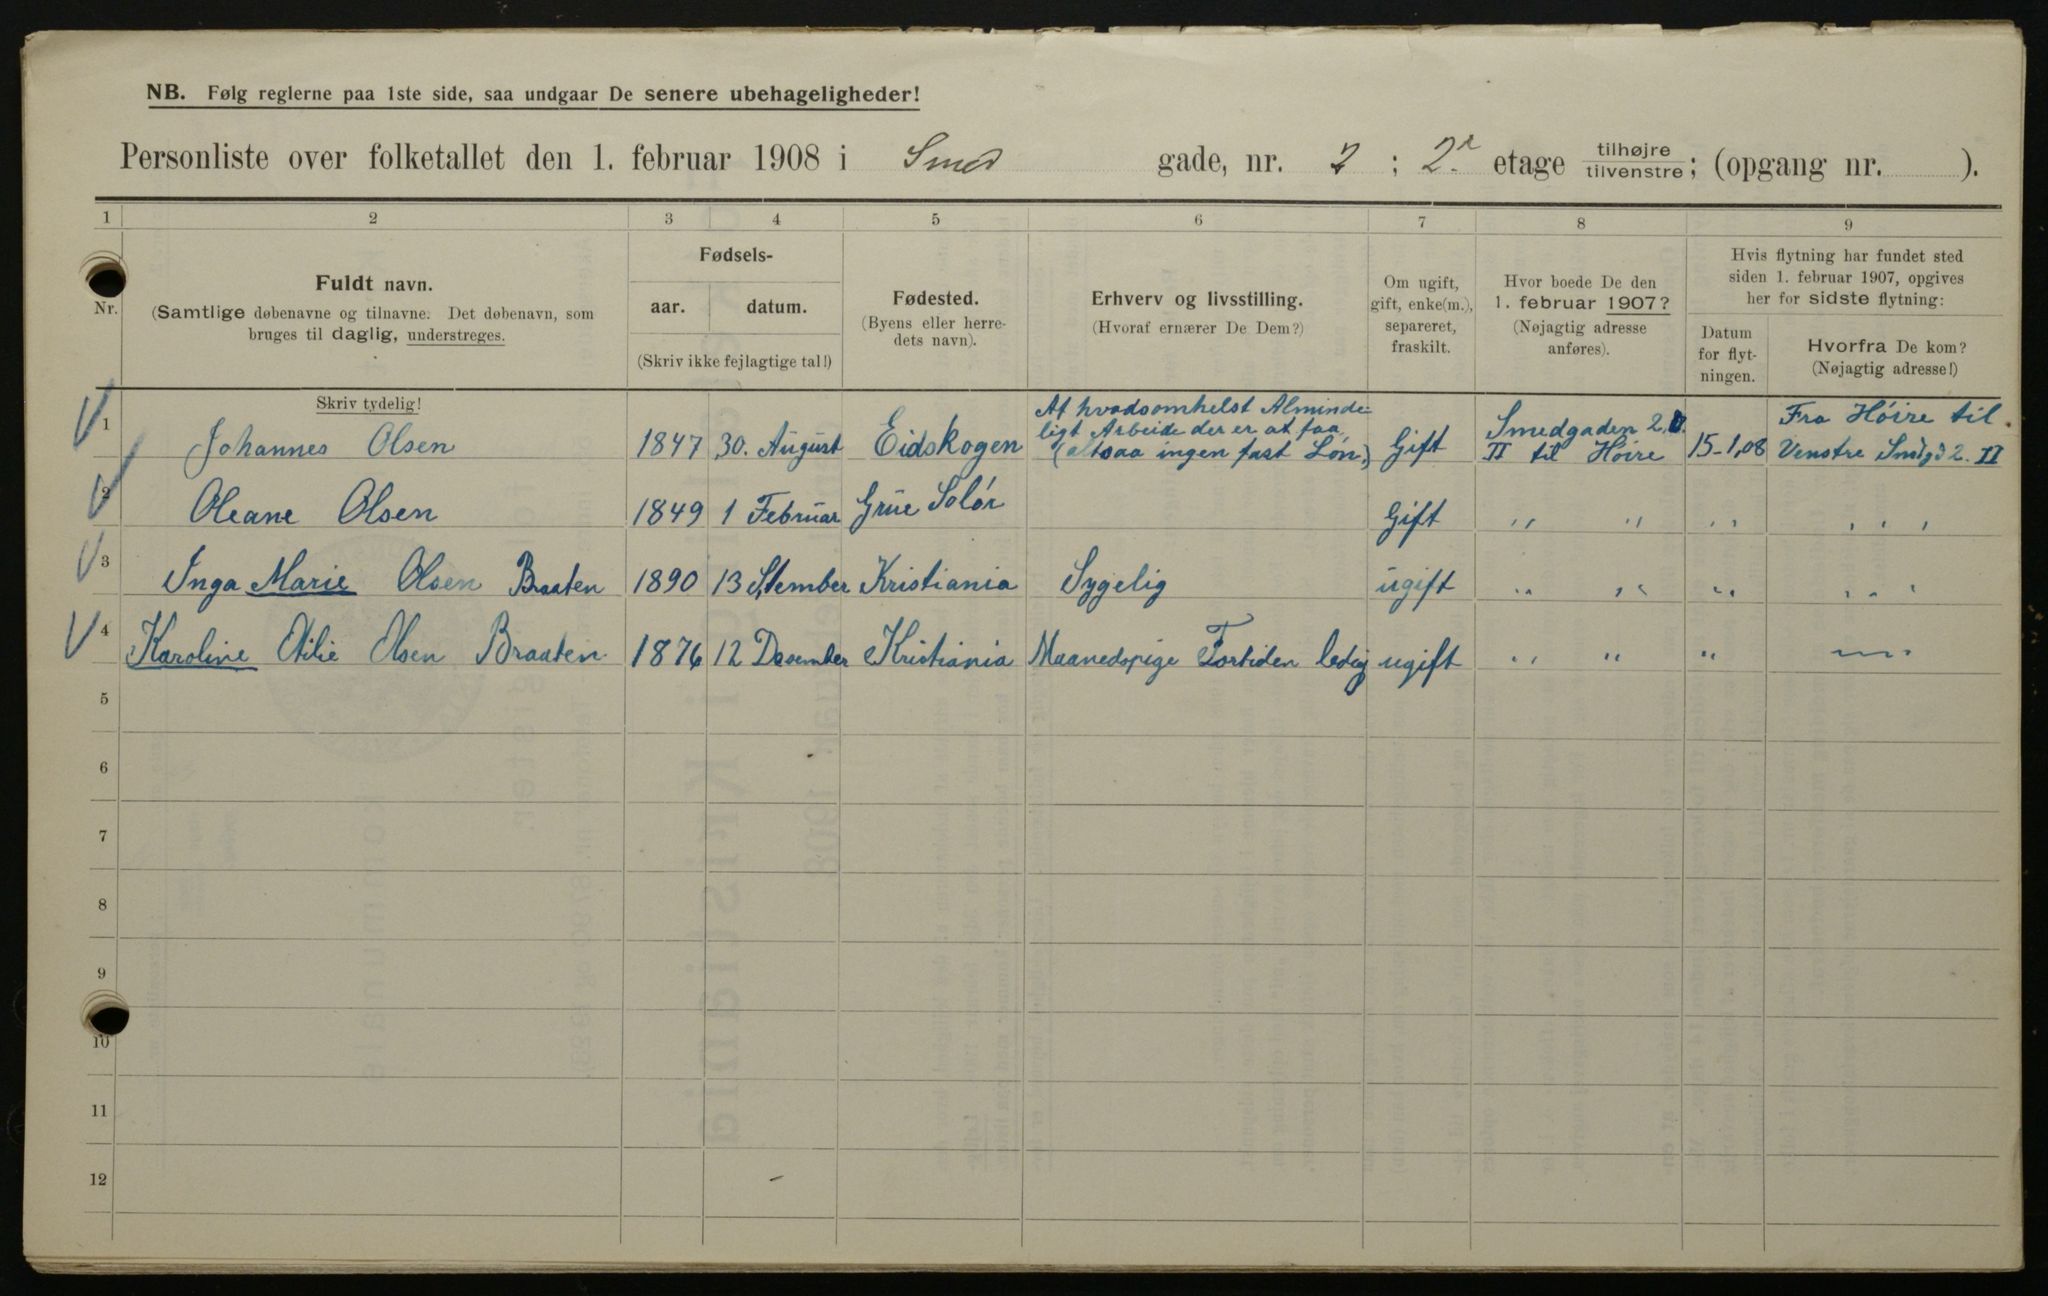 NB. Følg reglerne paa 1ste side, saa undgaar De senere ubehageligheder!
Personliste over folketallet den 1. februar 1908 i Smed gade, nr. 2 ; 2. etage tilhøjre / tilvenstre ; (opgang nr. ).
1 2 3 4 5 6 7 8 9
Nr.
Fuldt navn.
(Samtlige døbenavne og tilnavne. Det døbenavn, som
bruges til daglig, understreges.
Fødsels-
aar. datum.
(Skriv ikke fejlagtige tal!)
Fødested.
(Byens eller herre-
dets navn).
Erhverv og livsstilling.
(Hvoraf ernærer De Dem?)
Om ugift,
gift, enke(m.),
separeret,
fraskilt.
Hvor boede De den
1. februar 1907?
(Nøjagtig adresse
anføres).
Hvis flytning har fundet sted
siden 1. februar 1907, opgives
her for sidste flytning:
Datum
for flyt-
ningen.
Hvorfra De kom?
(Nøjagtig adresse!)
Skriv tydelig!
1 Johannes Olsen 1847 30. August Eidskogen
Af hvadsomhelst Alminde-
ligt Arbeide der er at faa
(altsaa ingen fast Løn)
Gift
Smedgaden 2.
II til Høire
15-1,08
Fra Høire til
Venstre Smdgd 2. II
2 Oleane Olsen 1849 1 Februar Grue Solør Gift ,, ,, ,, , , ,
3 Inga Marie Olsen Braaten 1890 13 Stember Kristiania Sygelig ugift ,, ,, ,, , , ,
4 Karoline Otilie Olsen Braaten 1876 12 Desember Kristiania Maanedspige Fortiden ledig ugift ,, ,, ,,
5
6
7
8
9
10
11
12